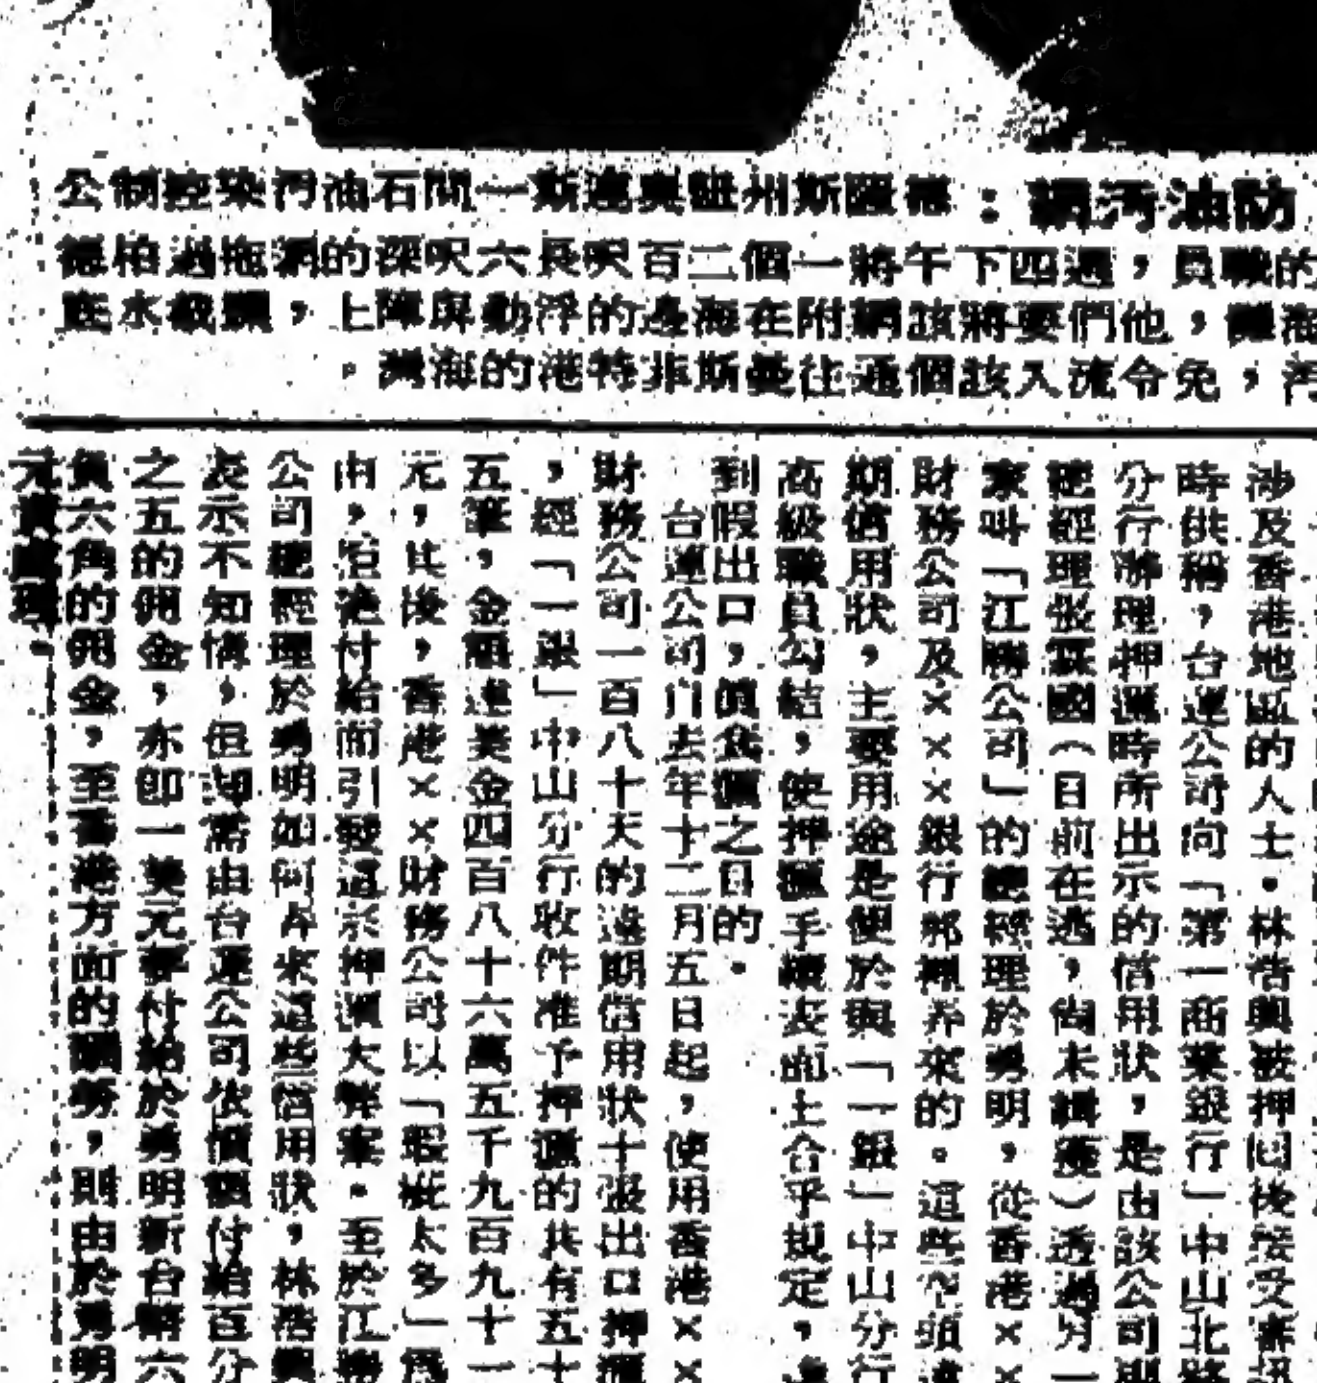 防油污網：德薩斯州奧達斯一間石油污染控制公
的職員，週四下午將一個二百呎長六呎深的網拖過柏德
海灘，他們要將該網附在海邊的浮動屏障上，攔截水底
污，免令流入該個通往曼斯非特港的海灣。
涉及香港地區的人士。林浩興被押回後接受審訊
時供稱，台運公司向「第一商業銀行」中山北路
分行辦理押匯時所出示的信用狀，是由該公司副
總經理張霖國（日前在逃，尚未緝獲）透過另一
家叫「江聯公司」的總經理於勇明，從香港××
財務公司及×××銀行那裡弄來的。這些空頭遠
期信用狀，主要用途是便於與「一銀」中山分行
高級職員勾結，使押匯手續表面上合乎規定，達
到假出口，真貪瀆之目的。
台運公司自去年十二月五日起，使用香港××
財務公司一百八十天的遠期信用狀十張出口押匯
，經「一銀」中山分行收件准予押匯的共有五十
五筆，金額達美金四百八十六萬五千九百九十一
元，此後，香港××財務公司以「瑕疵太多」為
由，拒絕付給而引發這宗押匯大弊案。至於江聯
公司總經理於勇明如何弄來這些信用狀，林浩興
表示不知情，但却需由台運公司依慣例付給百分
之五的佣金，亦即一美元要付給於勇明新台幣六
角六角的佣金，至香港方面的酬勞，則由於勇明
元負處理。